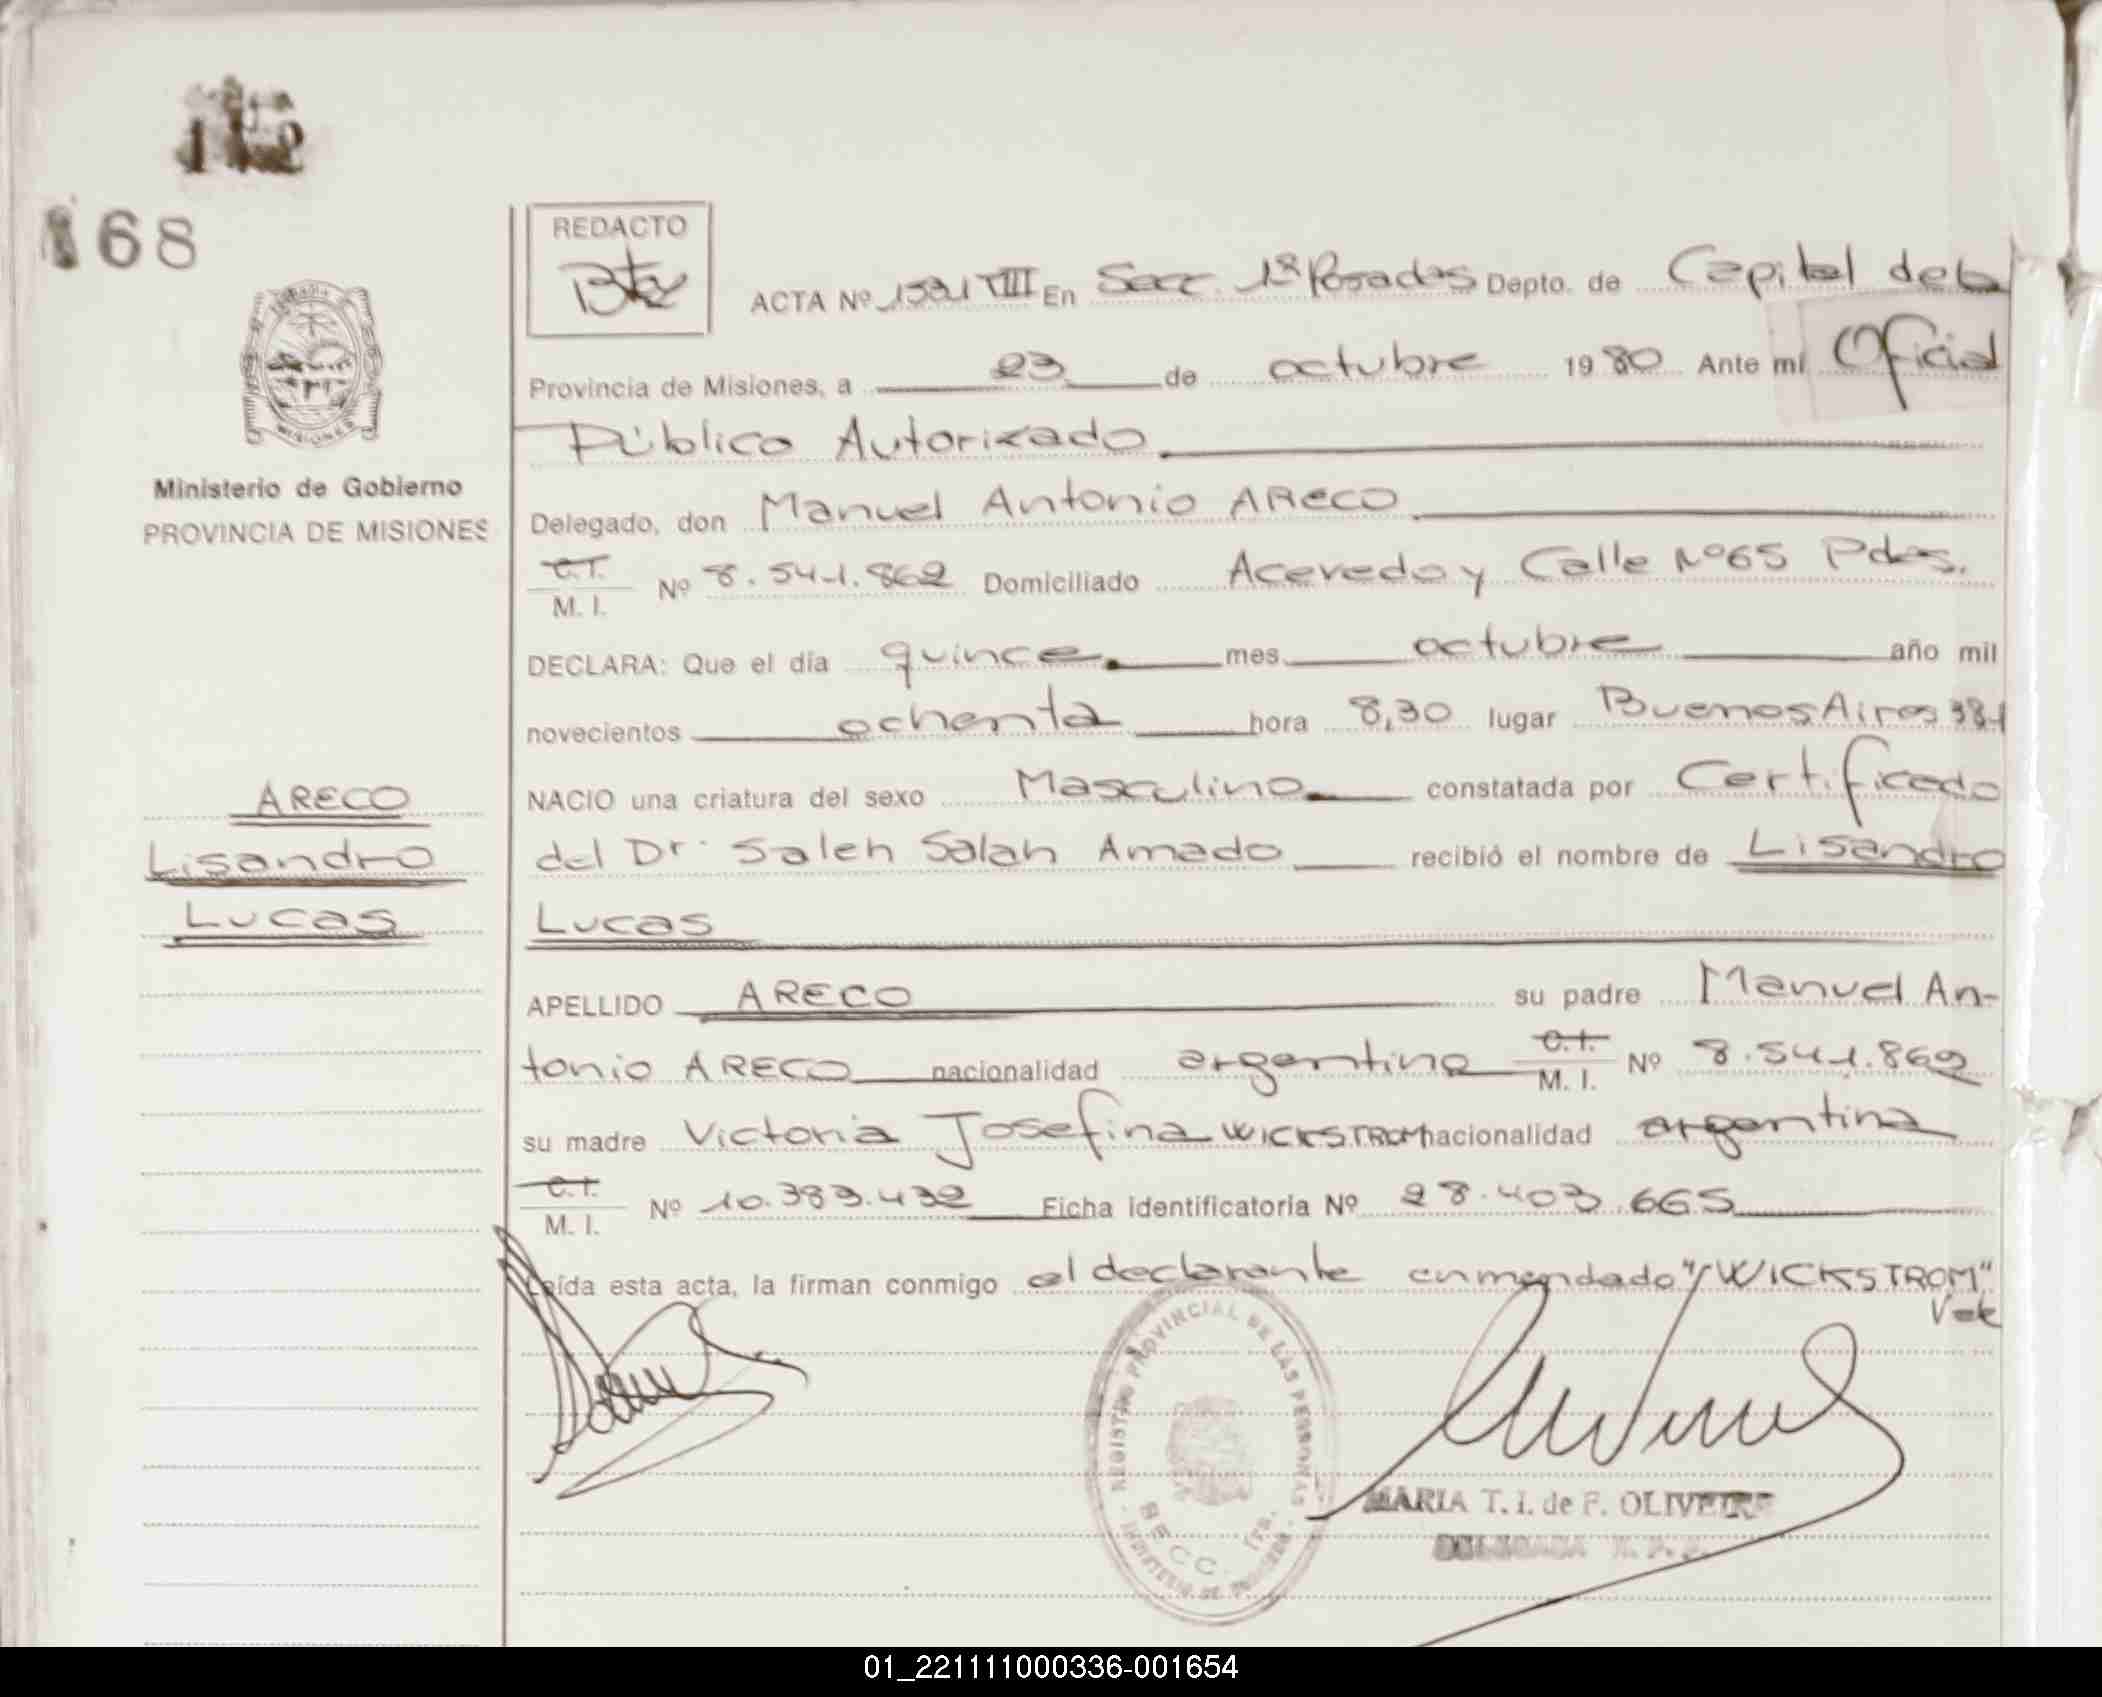 168
REDACTO
ACTA Nº 1531 VIII En Secc. 1ª Posadas Depto. de Capital de la
Provincia de Misiones, a 23 de octubre 1980 Ante mí Oficial
Público Autorizado
Ministerio de Gobierno
PROVINCIA DE MISIONES
MISIONES
Delegado, don Manuel Antonio ARECO
C.I.
M. I. Nº 8.541.862 Domiciliado Acevedo y Calle Nº65 Pdas.
DECLARA: Que el día quince mes octubre año mil
novecientos ochenta hora 8,30 lugar Buenos Aires 381
NACIO una criatura del sexo Masculino constatada por Certificado
del Dr. Saleh Salah Amado recibió el nombre de Lisandro
Lucas
ARECO
Lisandro
Lucas
APELLIDO ARECO su padre Manuel An-
tonio ARECO nacionalidad argentina C.I. M. I. Nº 8.541.862
su madre Victoria Josefina WICKSTROM nacionalidad argentina
C.I.
M. I. Nº 10.383.432 Ficha identificatoria Nº 28.403.665
Leída esta acta, la firman conmigo el declarante enmendado "WICKSTROM"
Vale
REGISTRO PROVINCIAL DE LAS PERSONAS
SECC. 1ra.
MARIA T. I. de F. OLIVEIRA
DELEGADA R. P. P.
01_221111000336-001654